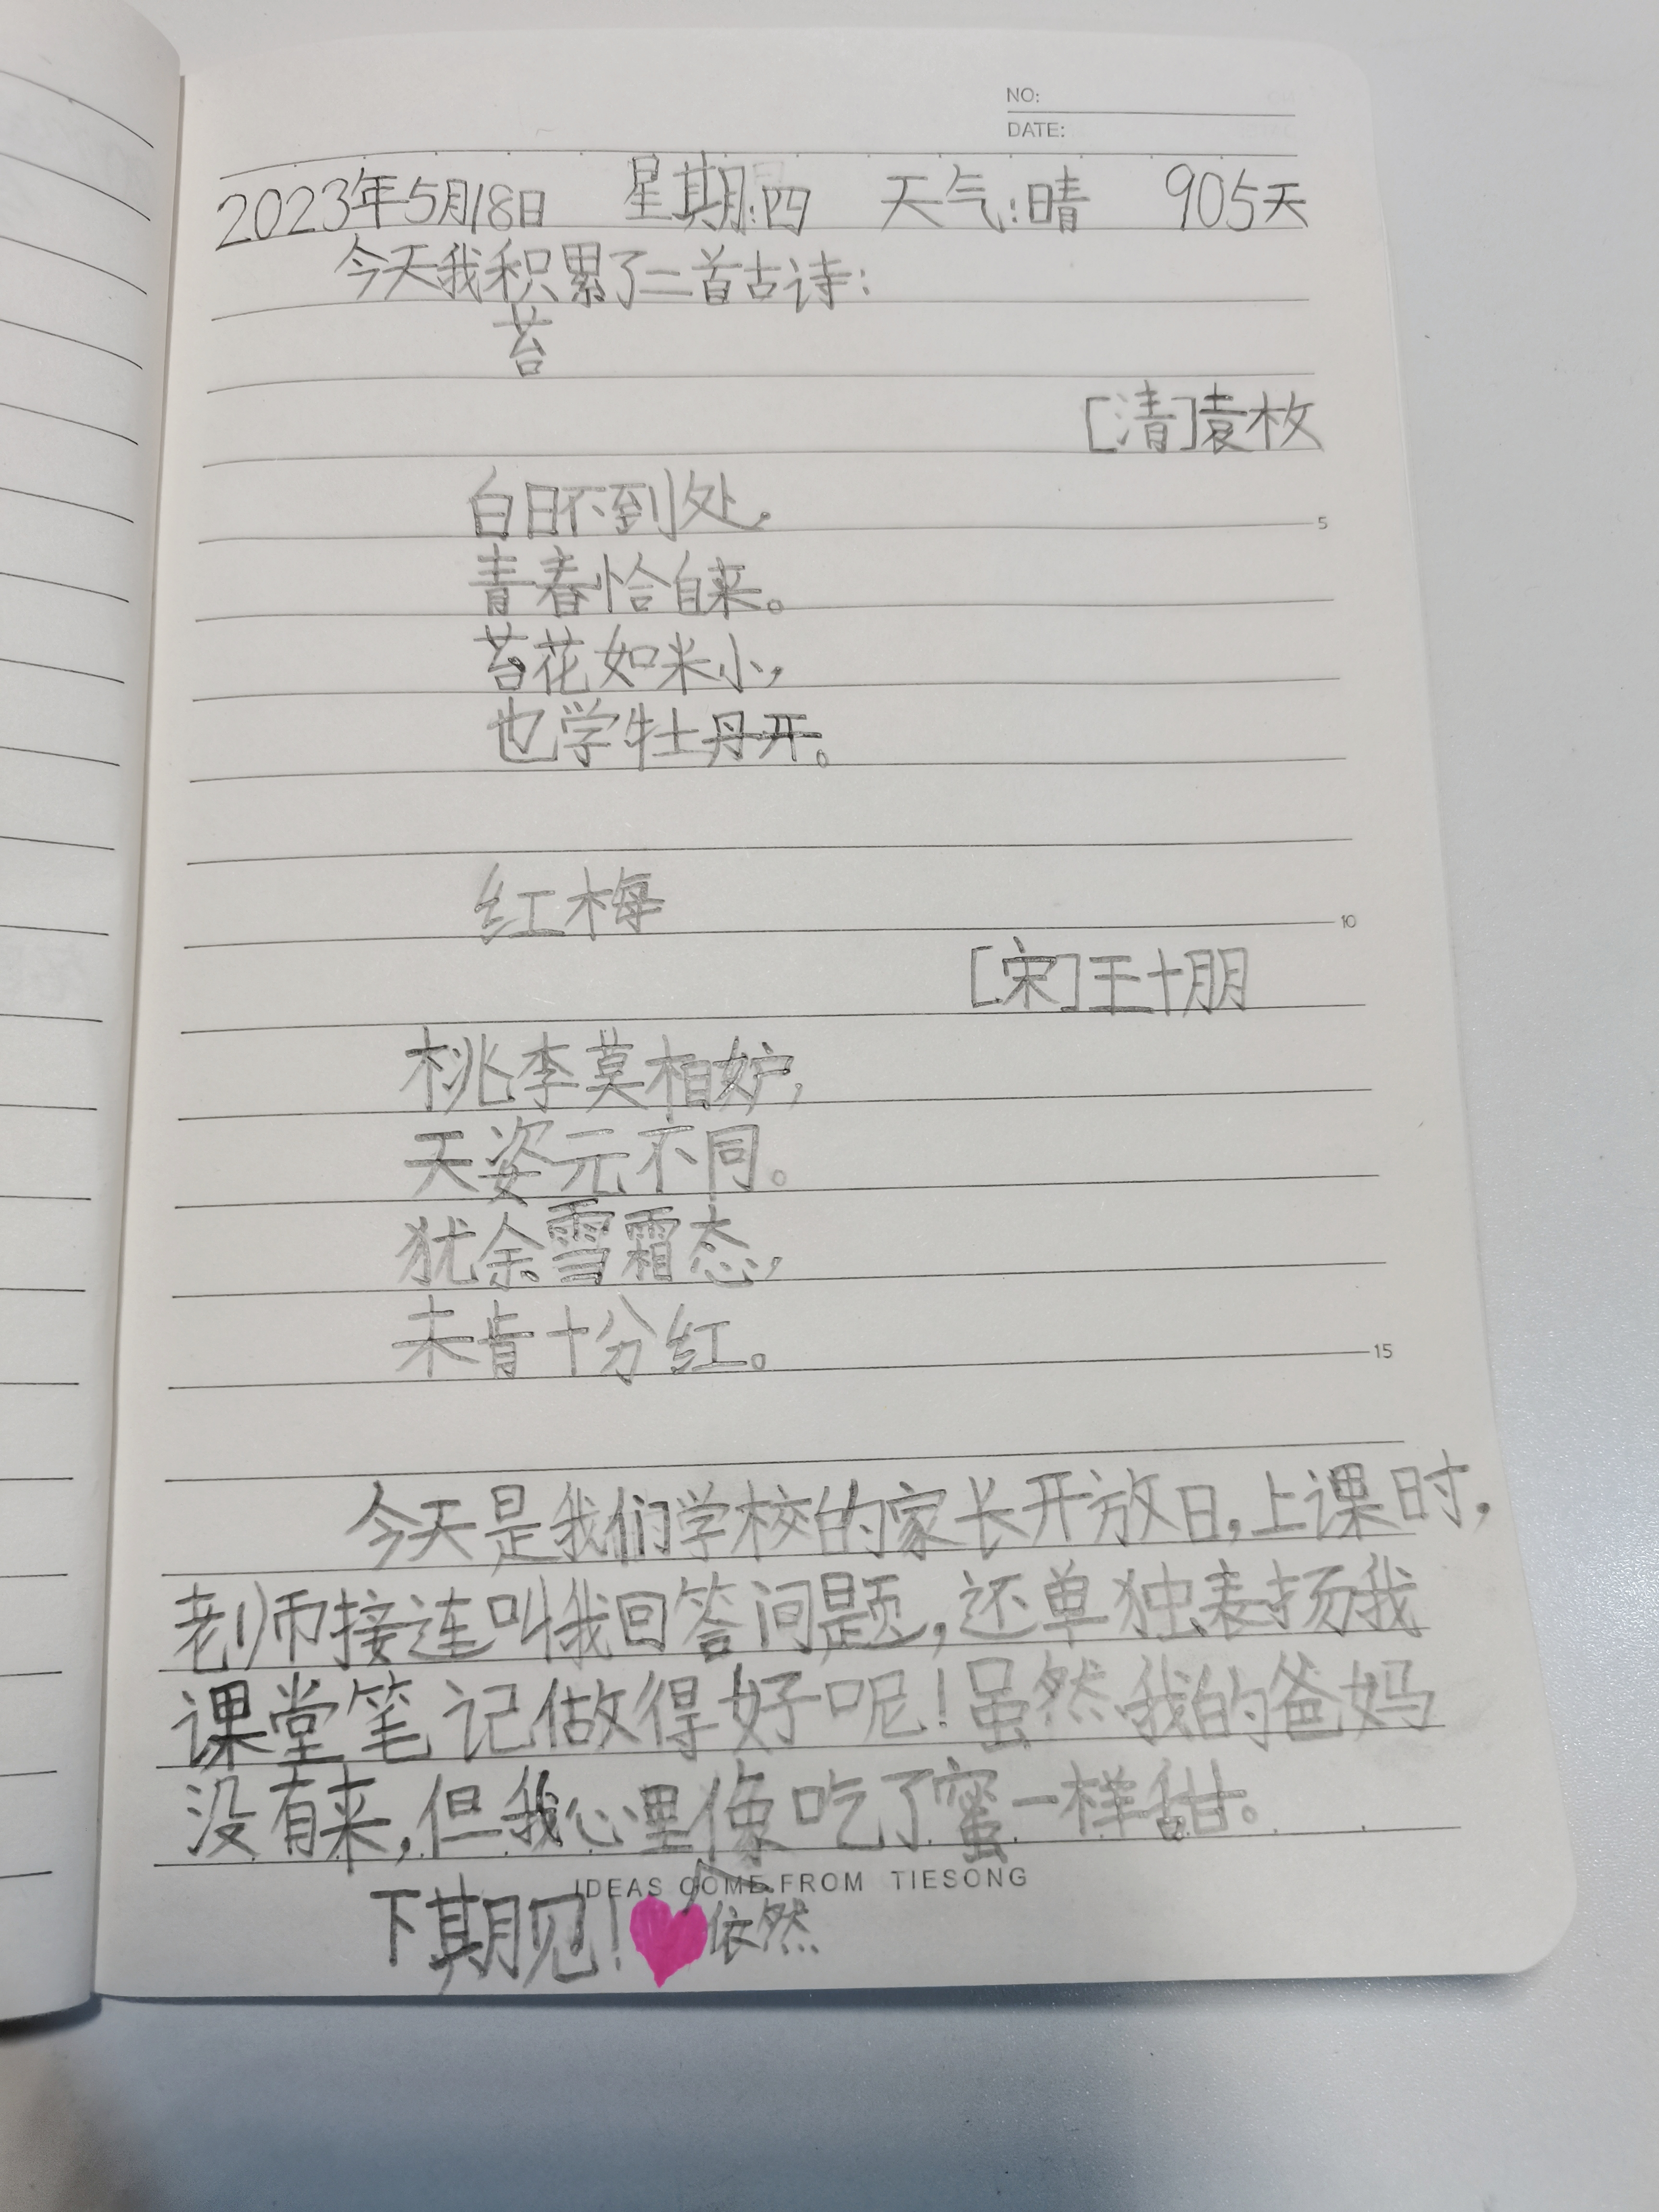 NO:
DATE:
2023年5月18日 星期:四 天气:晴 905天
今天我积累了二首古诗:
苔
[清]袁枚
白日不到处,
5
青春恰自来。
苔花如米小,
也学牡丹开。
红梅
10
[宋]王十朋
桃李莫相妒,
天姿元不同。
犹余雪霜态,
未肯十分红。
15
今天是我们学校的家长开放日,上课时,
老师接连叫我回答问题,还单独表扬我
课堂笔记做得好呢!虽然我的爸妈
没有来,但我心里像吃了蜜一样甜。
IDEAS COME FROM TIESONG
下期见! 依然